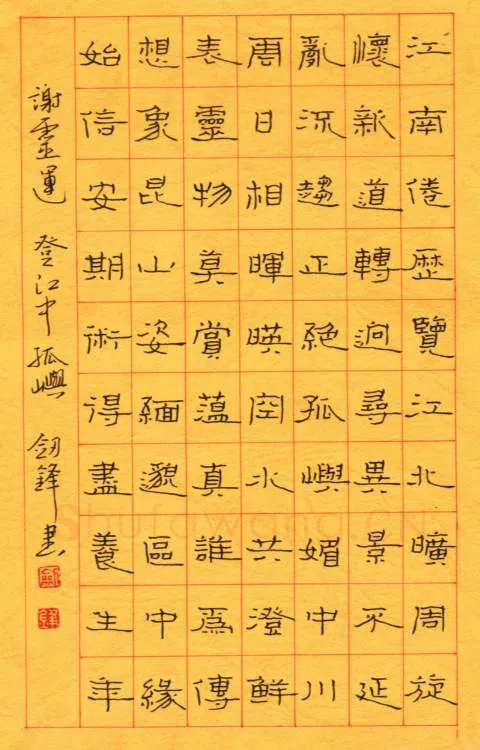 江南倦歷覽江北曠周旋
懷新道轉迥尋異景不延
亂流趨正絕孤嶼媚中川
雲日相暉映空水共澄鮮
表靈物莫賞薀真誰爲傳
想象昆山姿緬邈區中緣
始信安期術得盡養生年
謝靈運 登江中孤嶼 釼鋒書
Shufawang.CN